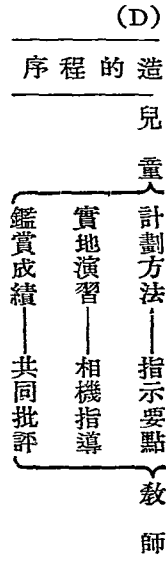 (D)
造的程序
兒童
計劃方法——指示要點
實地演習——相機指導
鑑賞成績——共同批評
教師